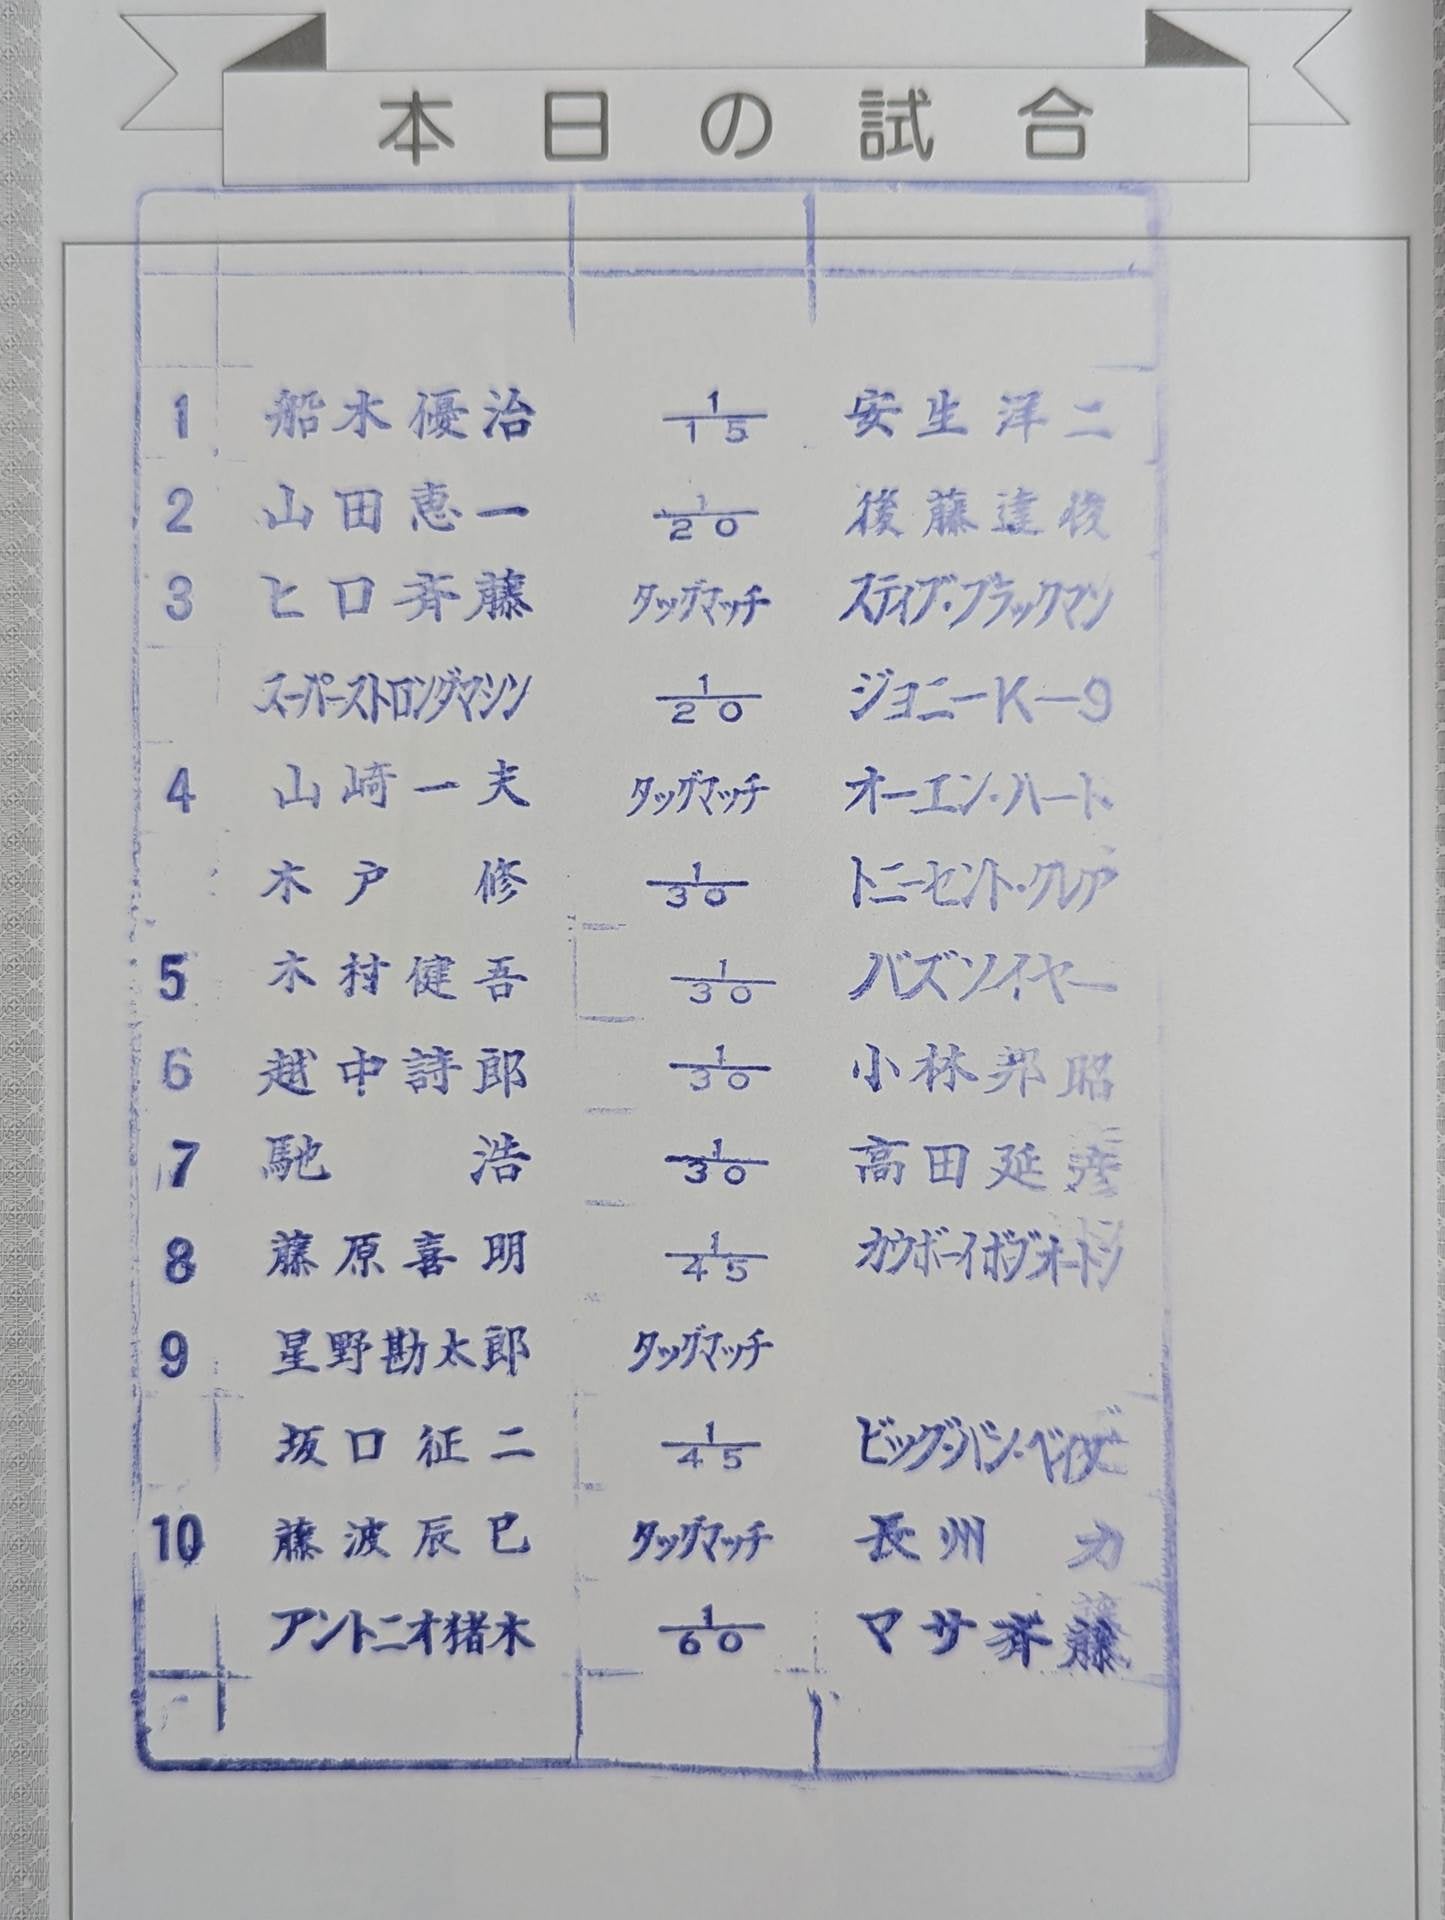 本日の試合
1 船木優治 1/15 安生洋二
2 山田恵一 1/20 後藤達俊
3 ヒロ斉藤 タッグマッチ スティブ・ブラックマン
スーパーストロングマシン 1/20 ジョニーK-9
4 山崎一夫 タッグマッチ オーエン・ハート
木戸修 1/30 トニーセント・クレア
5 木村健吾 1/30 バズソイヤー
6 越中詩郎 1/30 小林邦昭
7 馳浩 1/30 高田延彦
8 藤原喜明 1/45 カウボーイボブオートン
9 星野勘太郎 タッグマッチ
坂口征二 1/45 ビッグ・バン・ベイダー
10 藤波辰巳 タッグマッチ 長州力
アントニオ猪木 1/60 マサ斉藤